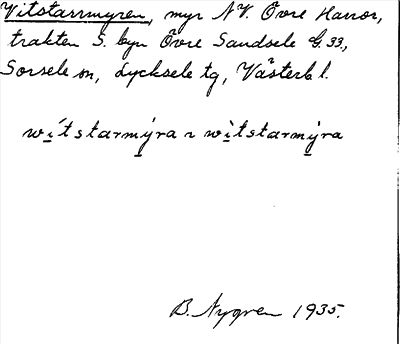 Vitstarrmyren, myr NV. Övre Harror,
trakten S. byn Övre Sandsele G. 33,
Sorsele sn, Lycksele tg, Västerb l.
wítstarmýra ~ wìtstarmýra
B. Nygren 1935.